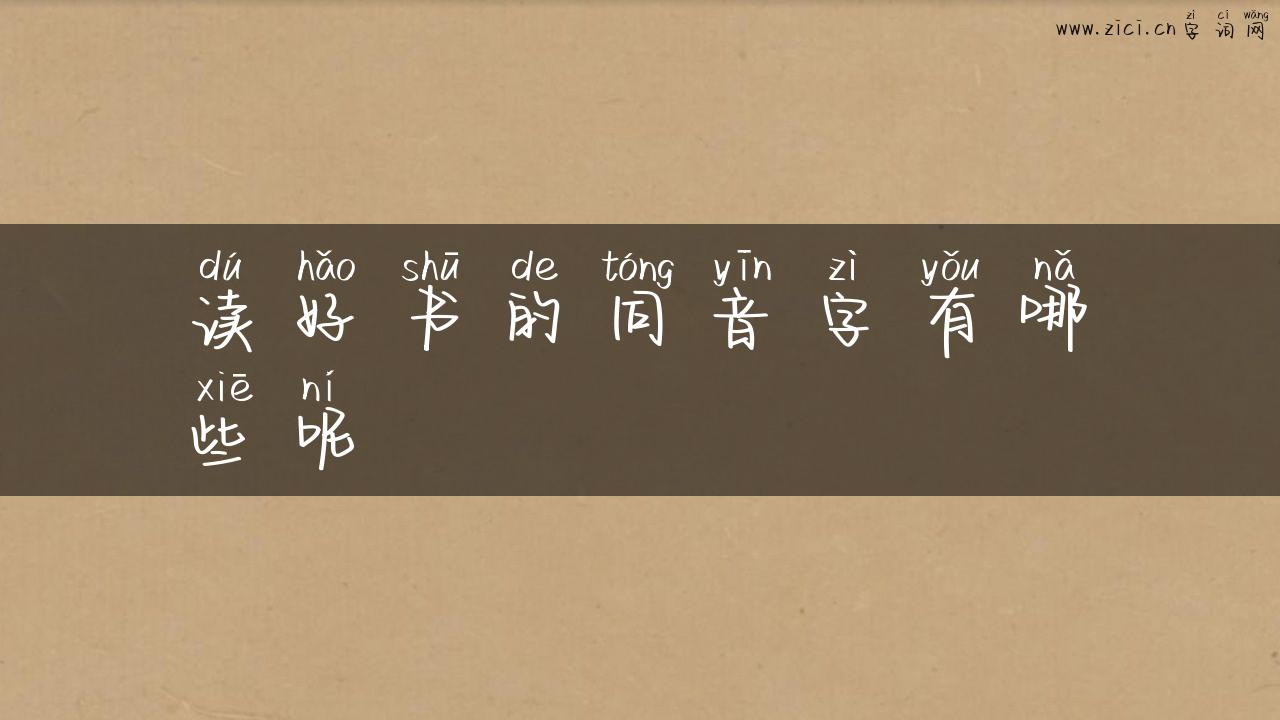 zì cí wǎng
www.zici.cn 字 词 网
dú hǎo shū de tóng yīn zì yǒu nǎ
读 好 书 的 同 音 字 有 哪
xiē ní
些 呢